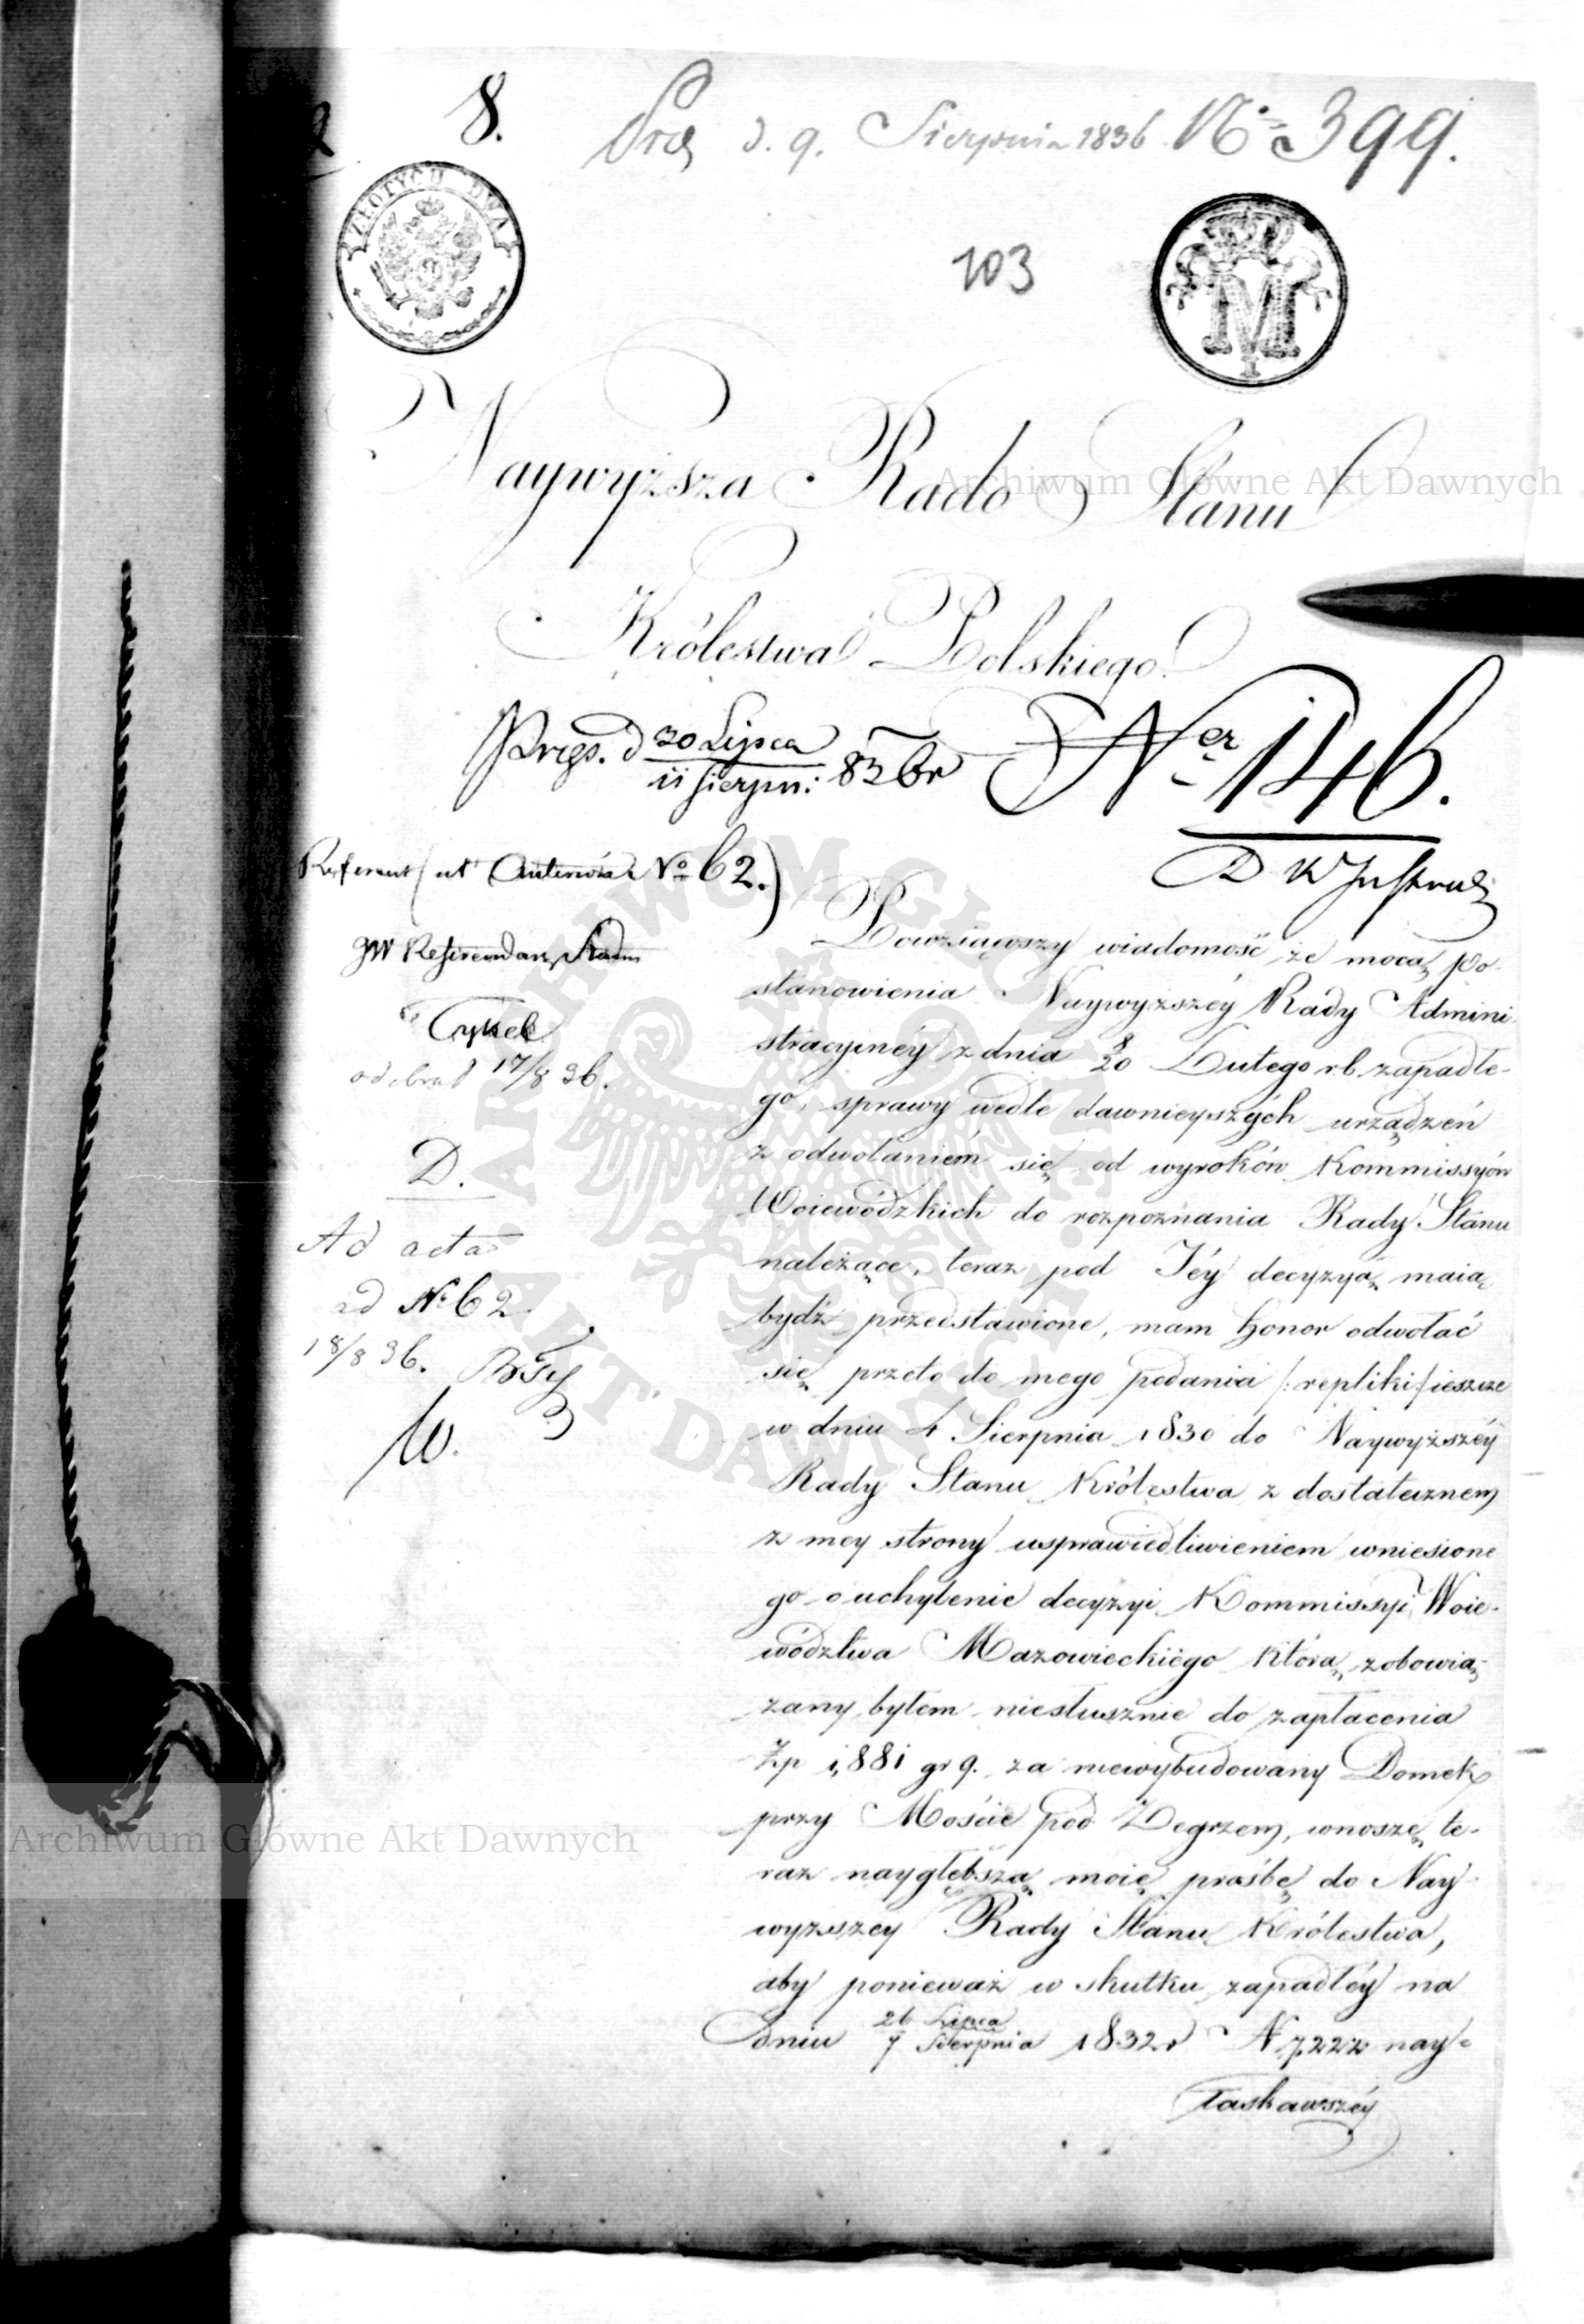 8.
Prez d. 9. Sierpnia 1836 No 399.
ZŁOTYCH DWA
103
Naywyższa Rado Stanu
Królestwa Polskiego!
Prez. d 30 Lipca / 11 Sierpn: 836 r Ner 146.
D W
Referent (ut No 62.)
JW Referendarz Stanu
odebrał 17/8 36.
D.
Ad acta
ad No 62.
18/8 36.
W.
Powziąwszy wiadomość, że mocą po-
stanowienia Naywyższéy Rady Admini-
stracyinéy z dnia 8/20 Lutego r.b. zapadłe-
go, sprawy wedle dawnieyszych urządzeń
z odwołaniem się od wyroków Kommissyów
Woiewódzkich do rozpoznania Rady Stanu
należące, teraz pod Jéy decyzyą maią
bydź przedstawione, mam honor odwołać
się przeto do mego podania /: repliki / ieszcze
w dniu 4 Sierpnia 1830 do Naywyższéy
Rady Stanu Królestwa z dostatecznem
z mey strony usprawiedliwieniem wniesione
go o uchylenie decyzyi Kommissyi Woie-
wództwa Mazowieckiégo którą zobowią-
zany byłem niesłusznie do zapłacenia
Zp 1,881 gr 9. za niewybudowany Domek
przy Moście pod Zegrzem, wnoszę te-
raz naygłębszą moię prośbę do Nay-
wyższey Rady Stanu Królestwa,
aby ponieważ w skutku zapadłéy na
dniu 26 Lipca / 7 Sierpnia 1832 r N 7,222 nay-
łaskawszéy
Archiwum Główne Akt Dawnych
Archiwum Główne Akt Dawnych
ARCHIWUM GŁÓWNE AKT DAWNYCH